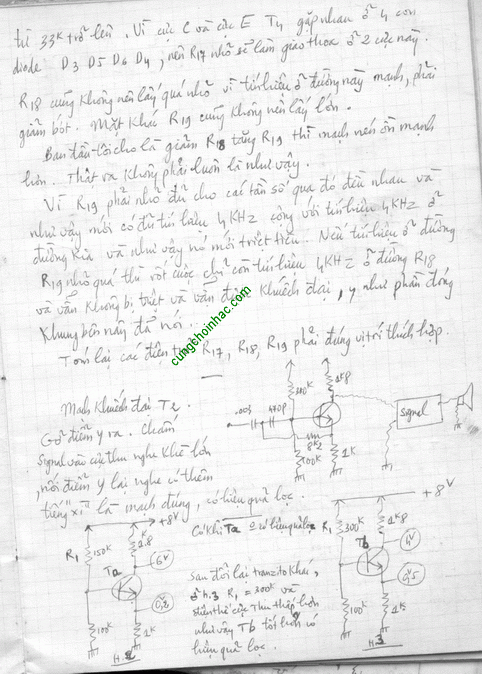 từ 33K trở lên. Vì cực C và cực E T4 gặp nhau ở 4 con
diode D3 D5 D6 D4, nên R17 nhỏ sẽ làm giao thoa ở 2 cực này.
R18 cũng không nên lấy quá nhỏ vì tín hiệu ở đường này mạnh, phải
giảm bớt. Mặt khác R19 cũng không nên lấy lớn.
Ban đầu tôi cho là giảm R18 tăng R19 thì mạch nén ồn mạnh
hơn. Thật ra không phải luôn là như vậy.
Vì R19 phải nhỏ đủ cho các tần số qua đó đều nhau và
như vậy mới có đủ tín hiệu 4KHz cộng với tín hiệu 4KHz ở
đường kia và như vậy nó mới triệt tiêu... Nếu tín hiệu ở đường
R19 nhỏ quá thì rốt cuộc chỉ còn tín hiệu 4KHz ở đường R18
và vẫn không bị triệt và vẫn được khuếch đại, y như phần đóng
khung bên này đã nói...
Tóm lại các điện trở R17, R18, R19 phải đúng vị trí thích hợp.
cungchoinhac.com
Mạch khuếch đại T2.
Gỡ điểm y ra. Chấm
signal vào cực thu nghe khẽ lớn
, nối điểm y lại nghe có thêm
tiếng "xì" là mạch đúng, có hiệu quả lọc.
.003
470P
390K
1K8
8K2
100K
1K
Signal
+8V
R1
150K
1.8
6V
Ta
0,2
100K
1K
H.2
Có khi Ta có hiệu quả lọc
Sau đổi lại tranzito khác,
ở h.3 R1 = 300K và
điện thế cực thu thấp hơn
như vậy Tb tốt hơn có
hiệu quả lọc.
+8V
R1
300K
1K8
4V
Tb
0,5
100K
1K
H.3